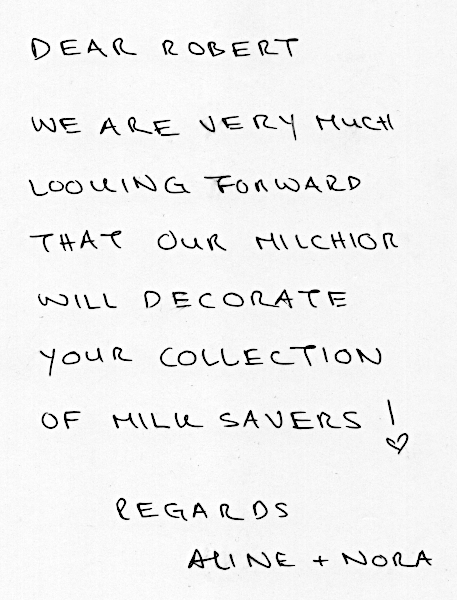 DEAR ROBERT
WE ARE VERY MUCH
LOOKING FORWARD
THAT OUR MILCHIOR
WILL DECORATE
YOUR COLLECTION
OF MILK SAVERS !
♡
REGARDS
ALINE + NORA